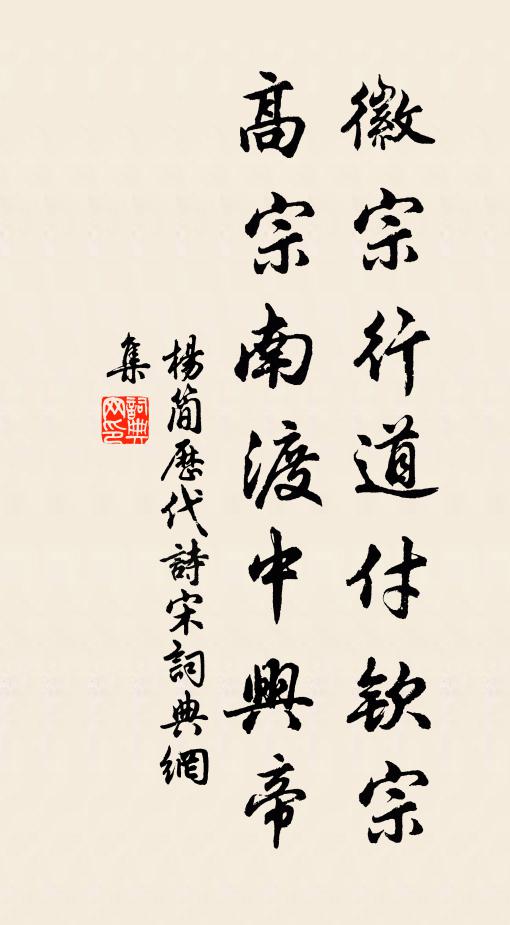 徽宗行道付欽宗
高宗南渡中興帝
楊簡歷代詩宋詞典網
集
詞典网印